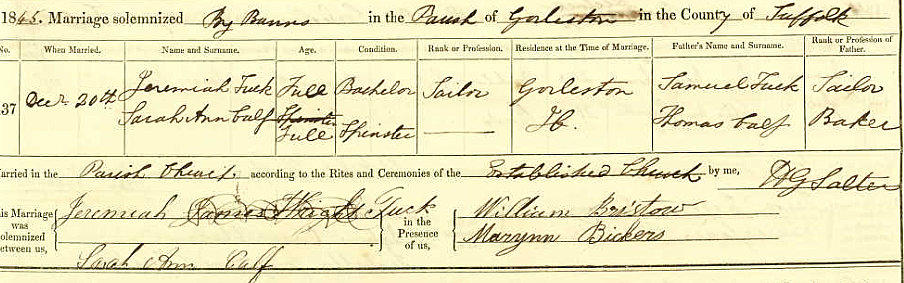 1865. Marriage solemnized By Banns in the Parish of Gorleston in the County of Suffolk
No. When Married. Name and Surname. Age. Condition. Rank or Profession. Residence at the Time of Marriage. Father's Name and Surname. Rank or Profession of Father.
37 Decr. 20th Jeremiah Tuck Full Bachelor Sailor Gorleston Samuel Tuck Sailor
Sarah Ann Calf Spinster Full Spinster Thomas Calf Baker
arried in the Parish Church according to the Rites and Ceremonies of the Established Church by me, Salter
his Marriage was solemnized between us, Jeremiah James Wright Tuck in the Presence of us, William Bristow
Sarah Ann Calf Maryann Bickers